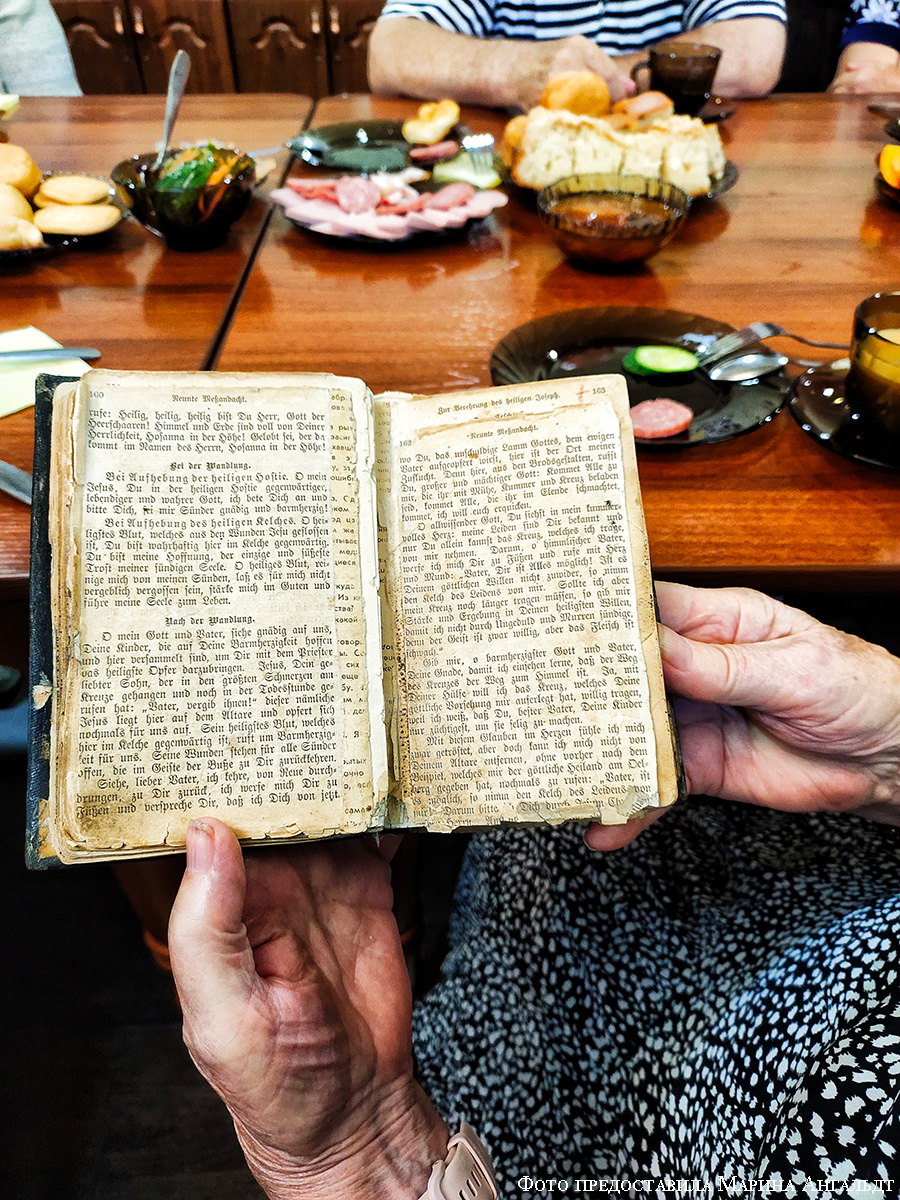 160 Neunte Meßandacht.
rufe: Heilig, heilig, heilig bist Du Herr, Gott der
Heerschaaren! Himmel und Erde sind voll von Deiner
Herrlichkeit, Hosanna in der Höhe! Gelobt sei, der da
kommt im Namen des Herrn, Hosanna in der Höhe!
Bei der Wandlung.
Bei Aufhebung der heiligen Hostie. O mein
Jesus, Du in der heiligen Hostie gegenwärtiger,
lebendiger und wahrer Gott, ich bete Dich an und
bitte Dich, sei mir Sünder gnädig und barmherzig!
Bei Aufhebung des heiligen Kelches. O hei-
ligstes Blut, welches aus den Wunden Jesu geflossen
ist, Du bist wahrhaftig hier im Kelche gegenwärtig.
Du bist meine Hoffnung, der einzige und süßeste
Trost meiner sündigen Seele. O heiliges Blut, rei-
nige mich von meinen Sünden, laß es für mich nicht
vergeblich vergossen sein, stärke mich im Guten und
führe meine Seele zum Leben.
Nach der Wandlung.
O mein Gott und Vater, siehe gnädig auf uns,
Deine Kinder, die auf Deine Barmherzigkeit hoffen
und hier versammelt sind, um Dir mit dem Priester
das heiligste Opfer darzubringen. Jesus, Dein ge-
liebter Sohn, der in den größten Schmerzen am
Kreuze gehangen und noch in der Todesstunde ge-
rufen hat: „Vater, vergib ihnen!“ dieser nämliche
Jesus liegt hier auf dem Altare und opfert sich
nochmals für uns auf. Sein heiligstes Blut, welches
hier im Kelche gegenwärtig ist, ruft um Barmherzig-
keit für uns. Seine Wunden stehen für alle Sünder
offen, die im Geiste der Buße zu Dir zurückkehren.
Siehe, lieber Vater, ich kehre, von Neue durch-
drungen, zu Dir zurück, ich werfe mich Dir zu
Füßen und verspreche Dir, daß ich Dich von jetzt
Zur Verehrung des heiligen Joseph. 163
162 Neunte Meßandacht.
wo Du, das unschuldige Lamm Gottes, dem ewigen
Vater aufgeopfert wirst, hier ist der Ort meiner
Zuflucht. Denn hier, aus den Brodsgestalten, rufst
Du, großer und mächtiger Gott: Kommet Alle zu
mir, die ihr mit Mühe, Kummer und Kreuz beladen
seid, kommet Alle, die ihr im Elende schmachtet,
kommet, ich will euch erquicken.
O allwissender Gott, Du siehst in mein kummer-
volles Herz; meine Leiden sind Dir bekannt und
nur Du allein kannst das Kreuz, welches ich trage,
von mir nehmen. Darum, o himmlischer Vater,
werfe ich mich Dir zu Füßen und rufe mit Herz
und Mund: „Vater, Dir ist Alles möglich! Ist es
Deinem göttlichen Willen nicht zuwider, so nimm
den Kelch des Leidens von mir. Sollte ich aber
mein Kreuz noch länger tragen müssen, so gib mir
Stärke und Ergebung in Deinen heiligsten Willen,
damit ich nicht durch Ungeduld und Murren sündige,
denn der Geist ist zwar willig, aber das Fleisch ist
schwach.“
Gib mir, o barmherzigster Gott und Vater,
Deine Gnade, damit ich einsehen lerne, daß der Weg
des Kreuzes der Weg zum Himmel ist. Ja, mit
Deiner Hülfe will ich das Kreuz, welches Deine
göttliche Vorsehung mir auferlegt hat, willig tragen,
weil ich weiß, daß Du, bester Vater, Deine Kinder
nur züchtigest, um sie selig zu machen.
Mit diesem Glauben im Herzen fühle ich mich
zwar getröstet, aber doch kann ich mich nicht von
Deinem Altare entfernen, ohne vorher nach dem
Beispiel, welches mir der göttliche Heiland am Oel-
berg gegeben hat, nochmals zu rufen: „Vater, ist
es möglich, so nimm den Kelch des Leidens von
mir.“ Darum bitte Dich durch Jesum Chr
Herrn. Am
Фото предоставила Марина Ангальдт